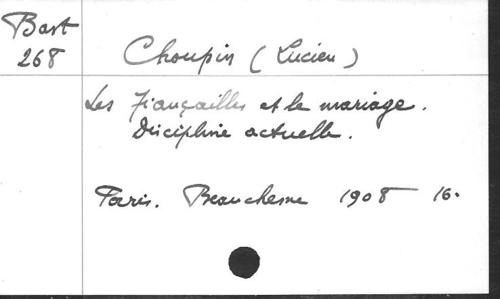 Bast
268
Choupin (Lucien)
Les Fiançailles et le mariage.
Discipline actuelle.
Paris. Beauchesne 1908 16.